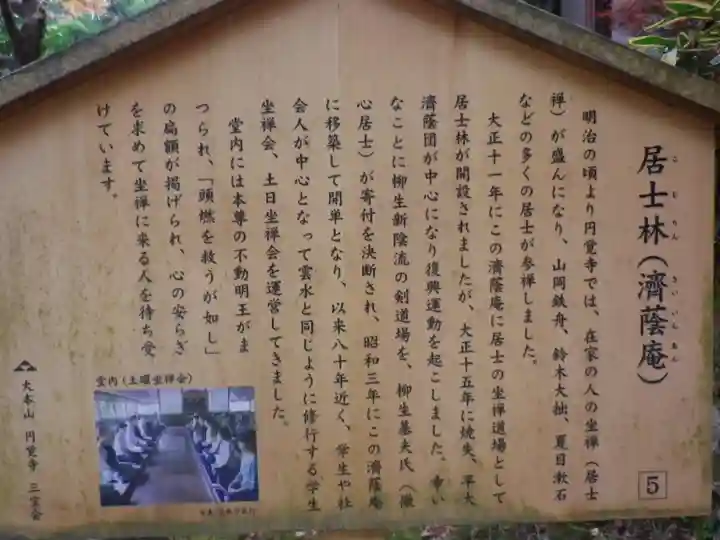 居士林（濟蔭庵）
こじりん
さいいんあん
明治の頃より円覚寺では、在家の人の坐禅（居士
禅）が盛んになり、山岡鉄舟、鈴木大拙、夏目漱石
などの多くの居士が参禅しました。
大正十一年にこの濟蔭庵に居士の坐禅道場として
居士林が開設されましたが、大正十五年に焼失、早大
濟蔭団が中心になり復興運動を起こしました。幸い
なことに柳生新陰流の剣道場を、柳生基夫氏（徹
心居士）が寄付を決断され、昭和三年にこの濟蔭庵
に移築して開単となり、以来八十年近く、学生や社
会人が中心となって雲水と同じように修行する学生
坐禅会、土日坐禅会を運営してきました。
堂内には本尊の不動明王がま
つられ、「頭燃を救うが如し」
の扁額が掲げられ、心の安らぎ
を求めて坐禅に来る人を待ち受
けています。
堂内（土曜坐禅会）
大本山 円覚寺 三宝会
5